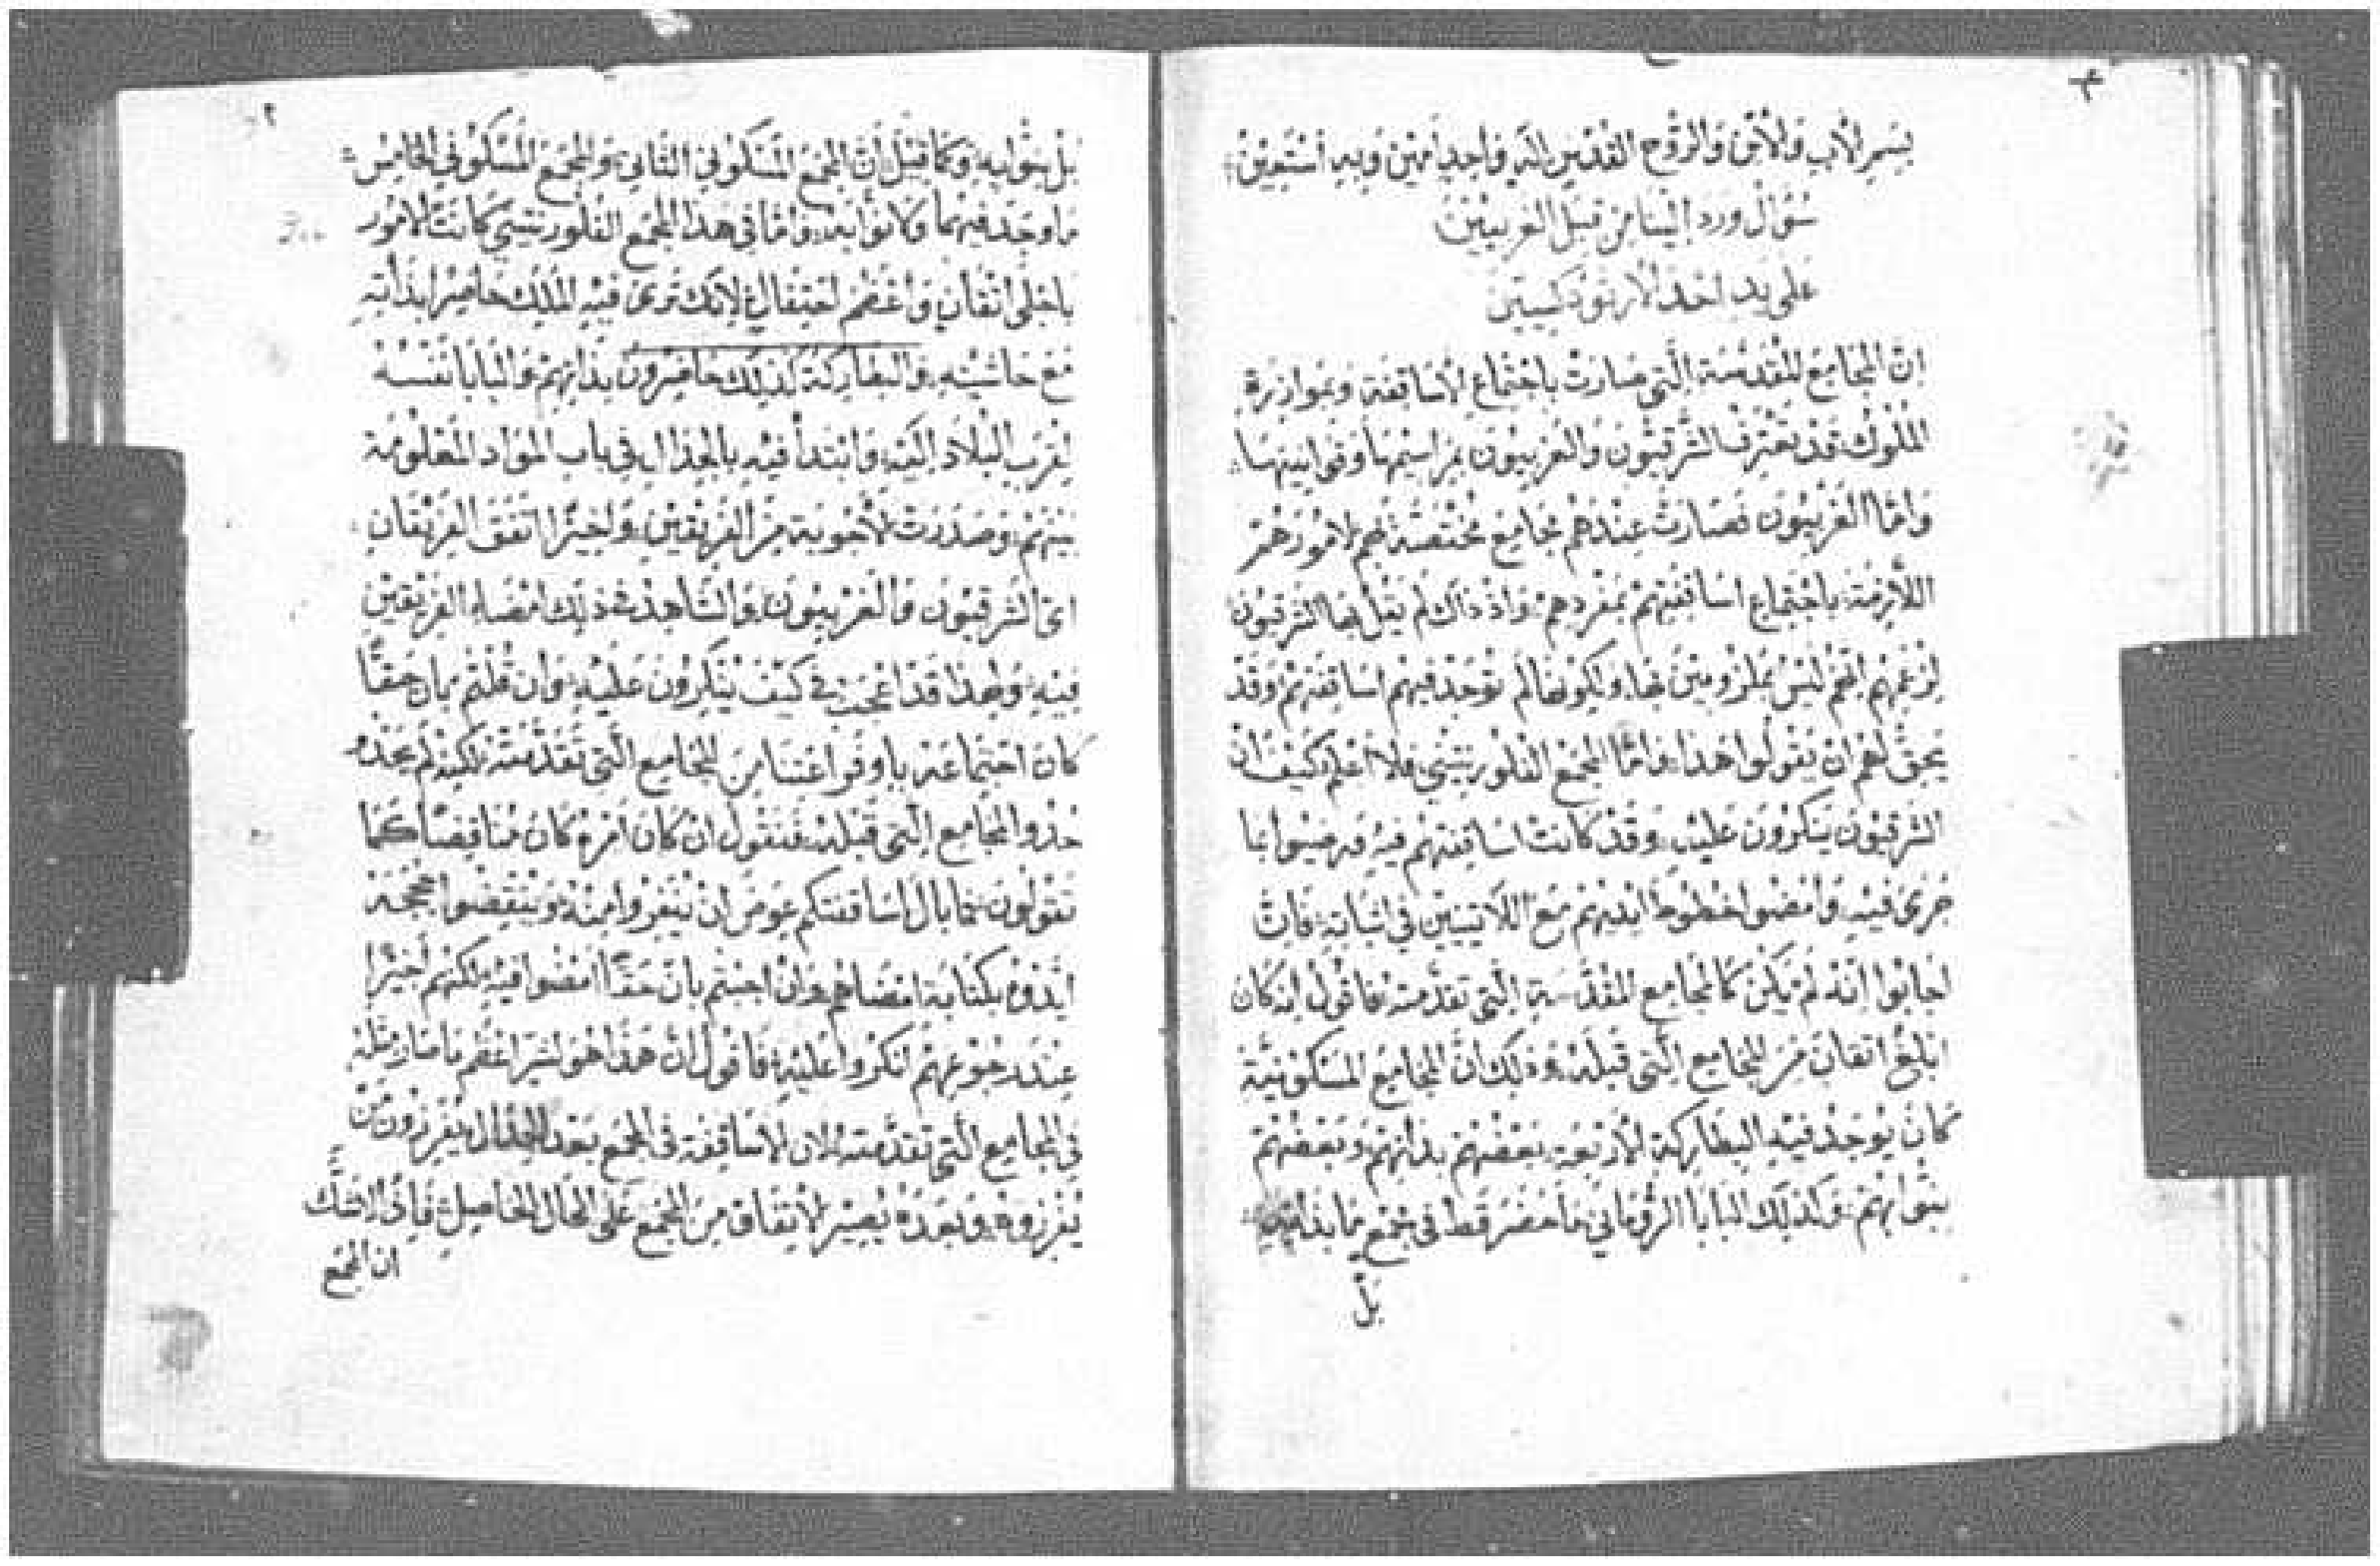 بسم الاب والابن والروح القدس اله واحد امين وبه استعين
سؤال ورد الينا من قبل الغربيين
على يد احد الارثوذكسيين
ان المجامع المقدسة التي صارت باجتماع الاساقفة وبموازرة
الملوك قد يعترف الشرقيون والغربيون بمراسيمها وقوانينها
واما الغربيون فصارت عندهم مجامع مختصة بهم لامورهم
اللازمة باجتماع اساقفتهم بمفردهم واذ ذاك لم يقبل بها الشرقيون
لزعمهم انهم ليس بملزومين بها ولكونها لم توجد فيهم اساقفتهم وقد
يحق لهم ان يقولوا هذا واما المجمع الفلورنتيني فلا اعلم كيف ان
الشرقيون ينكرون عليه وقد كانت اساقفتهم فيه فرضيوا بما
جرى فيه وامضوا خطوط ايديهم مع اللاتينيين في اثباته فان
اجابوا انه لم يكن كالمجامع المقدسة التي تقدمته فاقول انه كان
ابلغ اتقان من المجامع التي قبله وذلك ان المجامع المسكونية
كان يوجد فيه البطاركة الاربعة بعضهم بذاتهم وبعضهم
بنوابهم وكذلك البابا الروماني ما حضر قط في مجمع ما بذاته
بل
٢
بل بنوابه وكما قيل ان المجمع المسكوني الثاني والمجمع المسكوني الخامس
ما وجد فيهما ولا نوابه واما في هذا المجمع الفلورنتيني كانت الامور
باجلى اتقان واعظم احتفال لانك ترى فيه الملك حاضرا بذاته
مع حاشيته والبطاركة كذلك حاضرون بذاتهم والبابا نفسه
لقرب البلاد اليه وابتدأ فيه بالجدال في باب المواد المعلومة
بينهم وصدرت الاجوبة من الفريقين واخيرا اتفق الفريقان
اي الشرقيون والغربيون والشاهد في ذلك امضاء الفريقين
فيه ولهذا قد اعجب في كيف ينكرون عليه وان قلتم بان حقا
كان اجتماعه باوفر اعتنا من المجامع التي تقدمته لكنه لم يحذ
حذو المجامع التي قبله فنقول ان كان امره كان مناقضا كما
تقولون فما بال اساقفتكم عوض ان ينفروا منه وينقضوا حججه
ايدوه بكتابة امضاهم وان اجبتم بان حقا امضوا فيه لكنهم اخيرا
عند رجوعهم انكروا عليه فاقول ان هذا هو لشر اعظم ما صار مثله
في المجامع التي تقدمته لان الاساقفة في المجمع بعد الجدال يفرزون من
يفرزوه وبعده يصير الاتفاق من المجمع على الحال الحاصل فاذا لا شك
ان المجمع